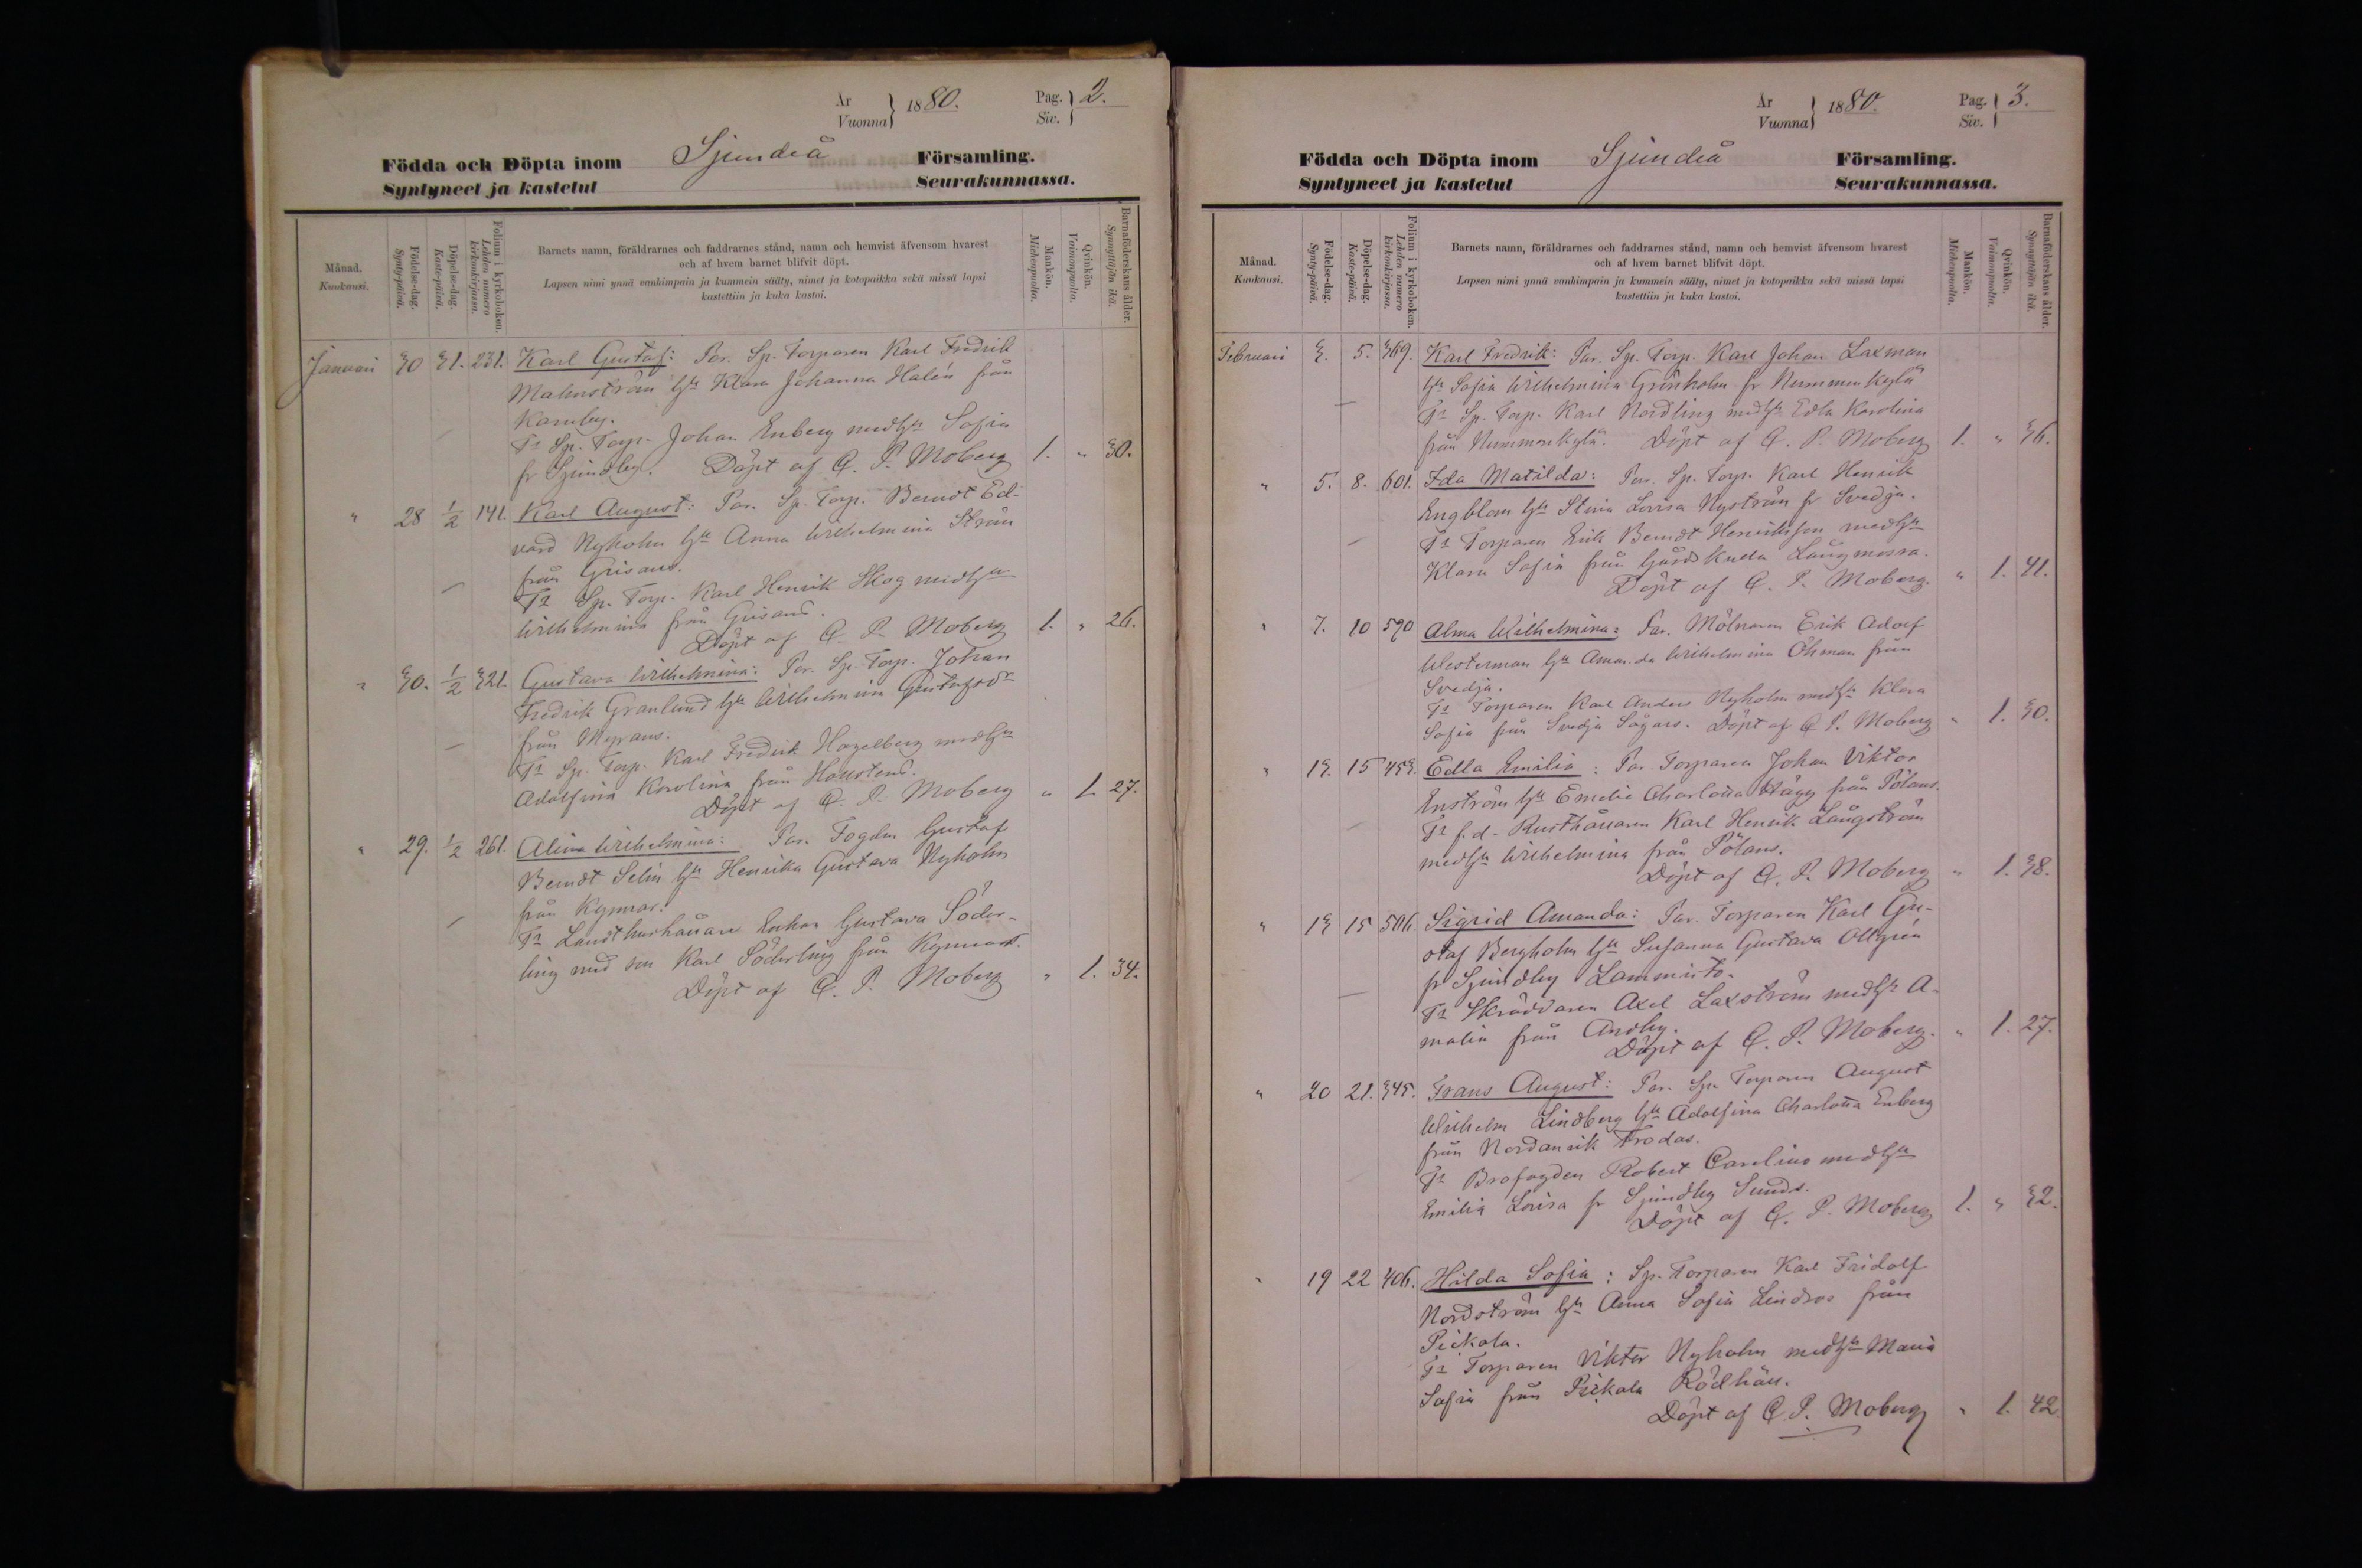 År
Vuonna } 1880. Pag. Siv. } 2.
Födda och Döpta inom Sjundeå Församling.
Syntyneet ja kastetut Seurakunnassa.
Månad. Kuukausi.
Födelse-dag. Synty-päivä.
Döpelse-dag. Kaste-päivä.
Folium i kyrkoboken. Lehden numero kirkonkirjassa.
Barnets namn, föräldrarnes och faddrarnes stånd, namn och hemvist äfvensom hvarest
och af hvem barnet blifvit döpt.
Lapsen nimi ynnä vanhimpain ja kummein sääty, nimet ja kotopaikka sekä missä lapsi
kastettiin ja kuka kastoi.
Mankön. Miehenpuolta.
Qvinkön. Vaimonpuolta.
Barnaföderskans ålder. Synnyttäjän ikä.
Januari 30 31. 231. Karl Gustaf: Par. Sp. Torparen Karl Fredrik
Malmström hu Klara Johanna Halén från
Karuby.
Fr Sp. Torp. Johan Enberg med hu Sofia
fr Sjundby. Döpt af C. P. Moberg 1. " 30.
" 28 1/2 141. Karl August: Par. Sp. Torp. Berndt Ed-
vard Nyholm hu Anna Wilhelmina Ström
från Grisans.
Fr Sp. Torp. Karl Henrik Skog med hu
Wilhelmina från Grisans.
Döpt af C. P. Moberg 1. " 26.
" 30. 1/2 321. Gustava Wilhelmina: Par. Sp. Torp. Johan
Fredrik Granlund hu Wilhelmina Gustafsdr
från Myrans.
Fr Sp. Torp. Karl Fredrik Hagelberg med hu
Adolfina Karolina från
Döpt af C. P. Moberg " 1. 27.
" 29. 1/2 261. Alina Wilhelmina: Par. Fogden Gustaf
Berndt Selin hu Henrika Gustava Nyholm
från Kynnar.
Fr Enkan Gustava Söder-
ling med son Karl Söderling från Kynnar.
Döpt af C. P. Moberg " 1. 34.
År
Vuonna } 1880. Pag. Siv. } 3.
Födda och Döpta inom Sjundeå Församling.
Syntyneet ja kastetut Seurakunnassa.
Månad. Kuukausi.
Födelse-dag. Synty-päivä.
Döpelse-dag. Kaste-päivä.
Folium i kyrkoboken. Lehden numero kirkonkirjassa.
Barnets namn, föräldrarnes och faddrarnes stånd, namn och hemvist äfvensom hvarest
och af hvem barnet blifvit döpt.
Lapsen nimi ynnä vanhimpain ja kummein sääty, nimet ja kotopaikka sekä missä lapsi
kastettiin ja kuka kastoi.
Mankön. Miehenpuolta.
Qvinkön. Vaimonpuolta.
Barnaföderskans ålder. Synnyttäjän ikä.
Februari 3. 5. 369. Karl Fredrik: Par. Sp. Torp. Karl Johan Laxman
hu Sofia Wilhelmina Grönholm fr Nummenkylä
Fr Sp. Torp. Karl Nordling med hu Edla Karolina
från Nummenkylä. Döpt af C. P. Moberg 1. " 36.
" 5. 8. 601. Ida Matilda: Par. Sp. Torp. Karl Henrik
Engblom hu Stina Lovisa Nyström fr Svedja.
Fr Torparen Erik Berndt Henriksson med hu
Klara Sofia från Gårdskulla Långmossa.
Döpt af C. P. Moberg. " 1. 41.
" 7. 10 590 Alma Wilhelmina: Par. Mölnaren Erik Adolf
Westerman hu Amanda Wilhelmina Öhman från
Svedja.
Fr Torparen Karl Anders Nyholm med hu Klara
Sofia från Svedja Sågars. Döpt af C. P. Moberg " 1. 30.
" 13. 15 453. Edla Emilia: Par. Torparen Johan Viktor
Enström hu Emelie Charlotta Hägg från Pölans.
Fr f.d. Rusthållaren Karl Henrik Långström
med hu Wilhelmina från Pölans.
Döpt af C. P. Moberg " 1. 38.
" 13 15 506. Sigrid Amanda: Par. Torparen Karl Gu-
staf Bergholm hu Susanna Gustava Ollgrén
fr Sjundby Lammisto.
Fr Skräddaren Axel Laxström med hu A-
malia från Andby.
Döpt af C. P. Moberg. " 1. 27.
" 20 21. 345. Frans August: Par. Sp. Torparen August
Wilhelm Lindberg hu Adolfina Charlotta Enberg
från Nordanvik Frodas.
Fr Brofogden Robert Carelius med hu
Emilia Lovisa fr Sjundby Sunds.
Döpt af C. P. Moberg 1. " 32.
" 19 22 406. Hilda Sofia: Sp. Torparen Karl Fridolf
Nordström hu Anna Sofia Lindroos från
Pickala.
Fr Torparen Viktor Nyholm med hu Maria
Sofia från Pickala Rödhäll.
Döpt af C. P. Moberg " 1. 42.